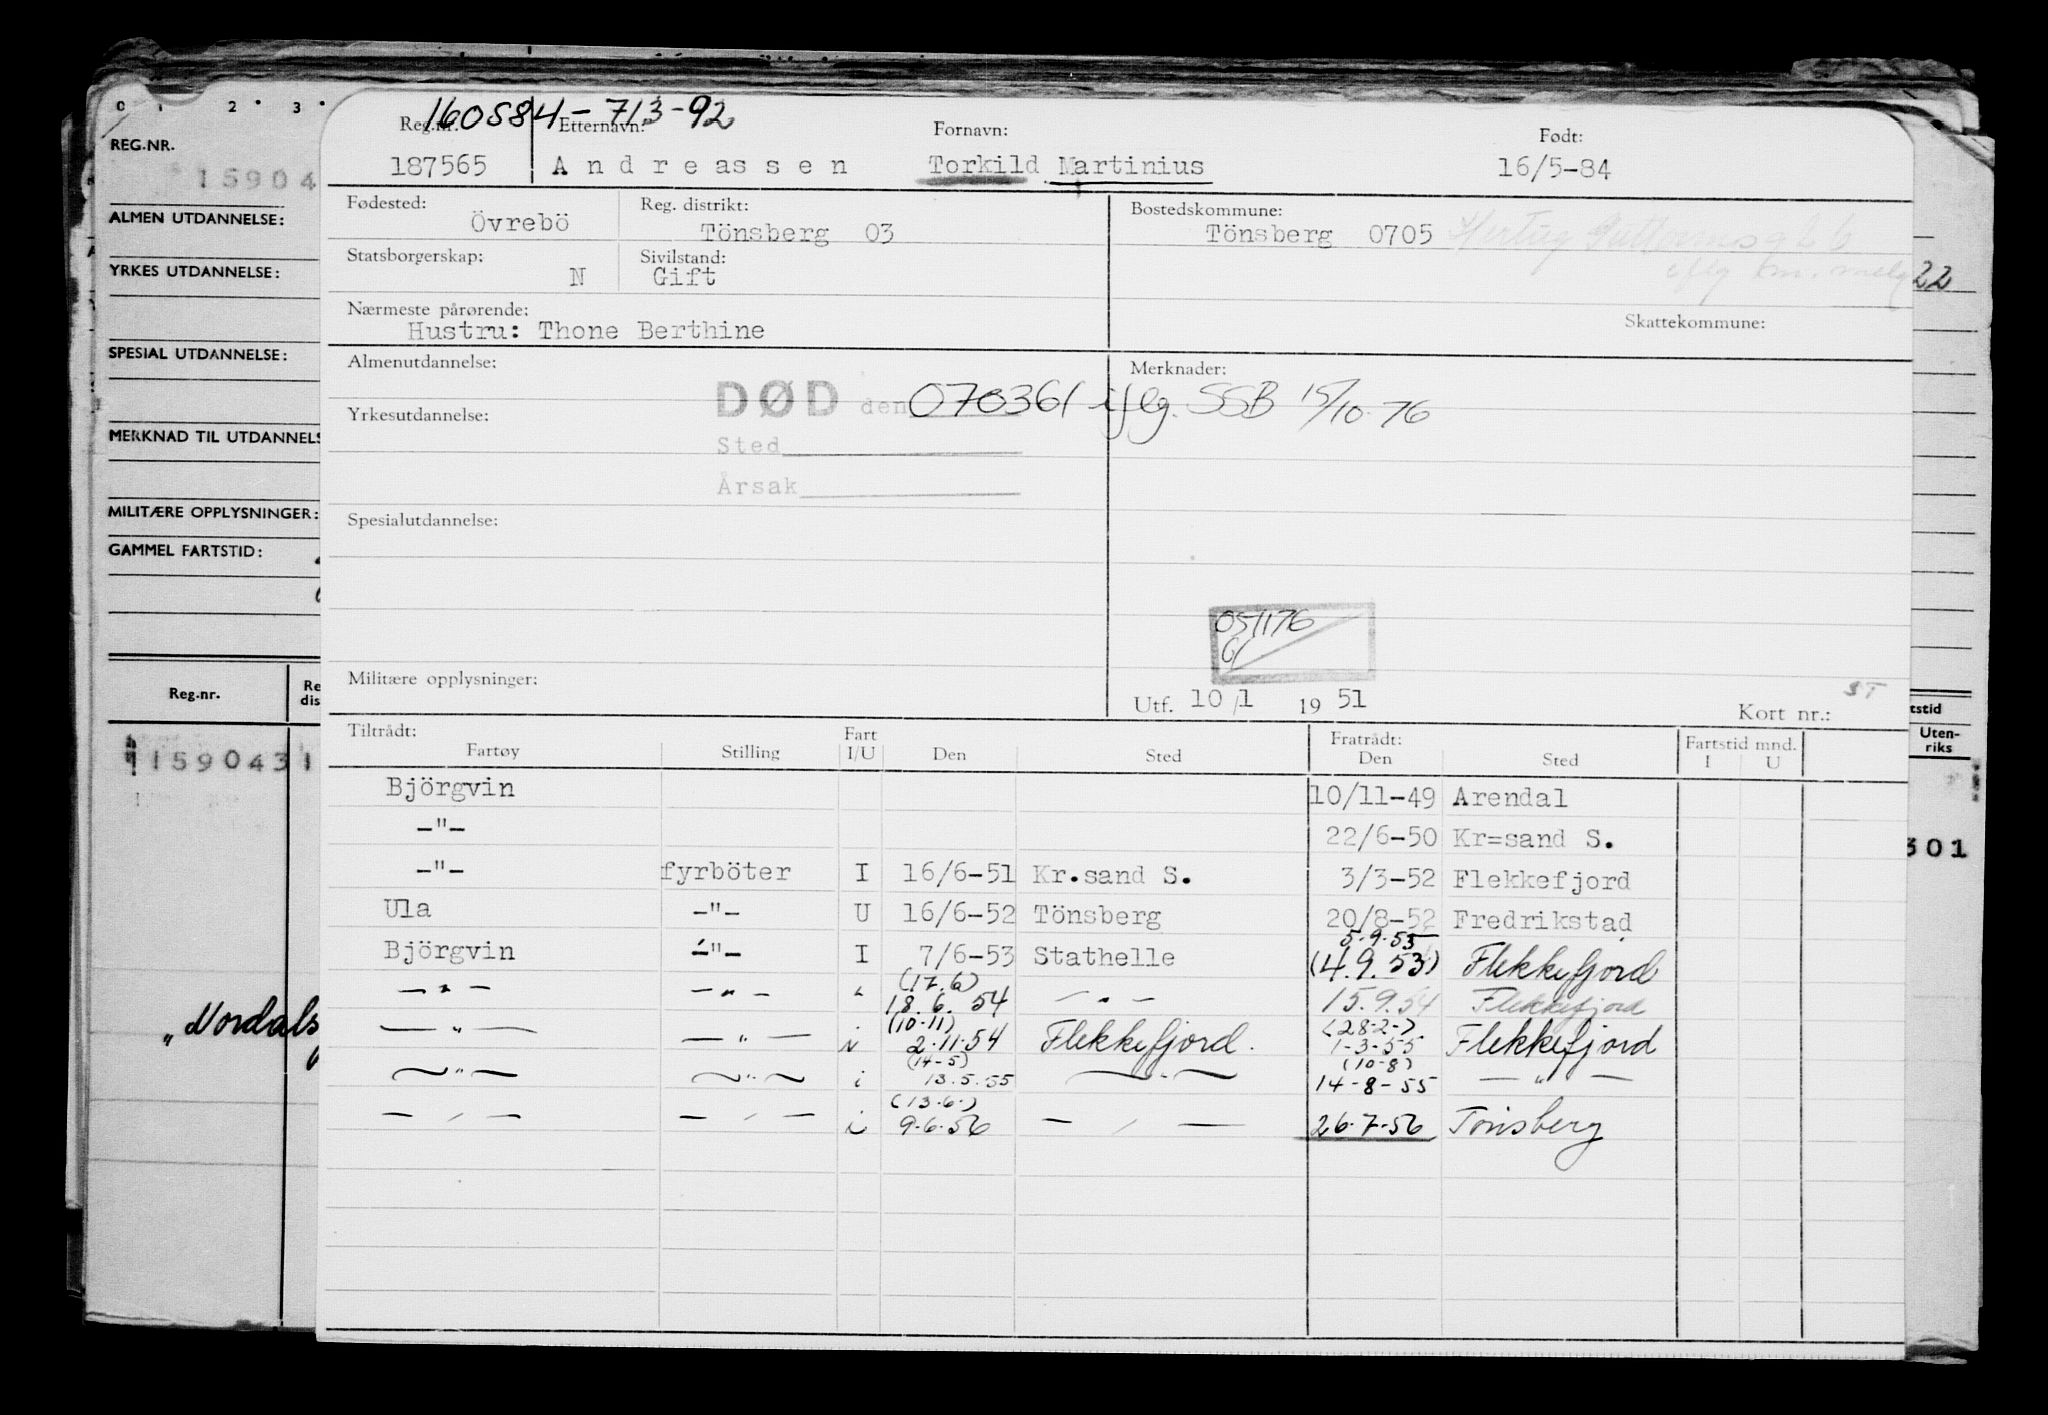 0 1 2 3
REG.NR.
15904
ALMEN UTDANNELSE:
YRKES UTDANNELSE:
SPESIAL UTDANNELSE:
MERKNAD TIL UTDANNELS
MILITÆRE OPPLYSNINGER:
GAMMEL FARTSTID:
Reg.nr. Re dis
1590431
"Nordals
160584-713-92
Reg.nr. Etternavn: Fornavn: Født:
187565 Andreassen Torkild Martinius 16/5-84
Fødested: Reg. distrikt: Bostedskommune:
Övrebö Tönsberg 03 Tönsberg 0705 Hertug Guttormsg
Statsborgerskap: Sivilstand:
N Gift
22
Nærmeste pårørende: Skattekommune:
Hustru: Thone Berthine
Almenutdannelse: Merknader:
DØD den 070361 iflg. SSB 15/10-76
Yrkesutdannelse:
Sted
Årsak
Spesialutdannelse:
051176
Militære opplysninger:
Utf. 10/1 19 51 Kort nr.: ST
tstid
Uten-
riks
301
Tiltrådt: Fratrådt: Fartstid mnd.
Fartøy Stilling Fart I/U Den Sted Den Sted I U
Björgvin 10/11-49 Arendal
-"- 22/6-50 Kr=sand S.
-"- fyrböter I 16/6-51 Kr.sand S. 3/3-52 Flekkefjord
Ula -"- U 16/6-52 Tönsberg 20/8-52 Fredrikstad
5.9.53
Björgvin -"- I 7/6-53 Stathelle (4.9.53) Flekkefjord
(17.6)
-"- -"- " 18.6.54 -"- 15.9.54 Flekkefjord
(10-11) (28-2-)
-"- -"- i 2.11.54 Flekkefjord. 1-3-55 Flekkefjord
(14-5) (10-8)
-"- -"- i 13.5.55 -"- 14-8-55 -"-
(13.6.)
-"- -"- i 9.6.56 -"- 26.7.56 Tönsberg